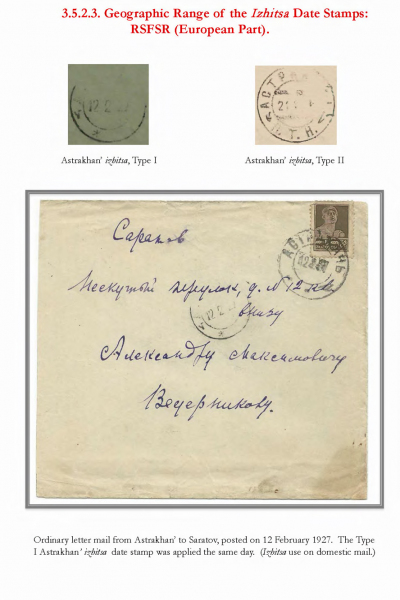 3.5.2.3. Geographic Range of the Izhitsa Date Stamps:
RSFSR (European Part).
Astrakhan' izhitsa, Type I
Astrakhan' izhitsa, Type II
Саратов
переулок, д. № 12
внизу
Александру Максимовичу
Ведерникову.
Ordinary letter mail from Astrakhan' to Saratov, posted on 12 February 1927. The Type
I Astrakhan' izhitsa date stamp was applied the same day. (Izhitsa use on domestic mail.)